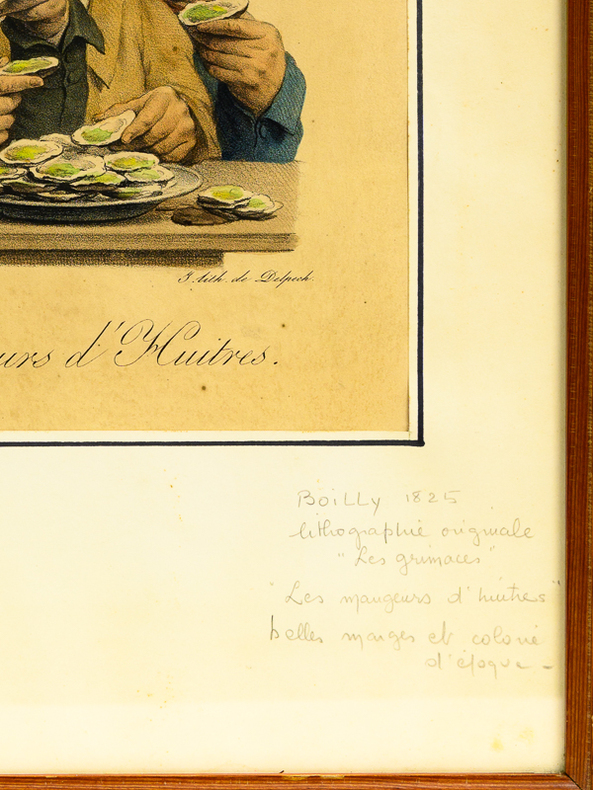 J. lith. de Delpech.
urs d'Huitres.
BOILLY 1825
lithographie originale
"Les grimaces"
"Les mangeurs d'huitres"
belles marges et colorié
d'époque -